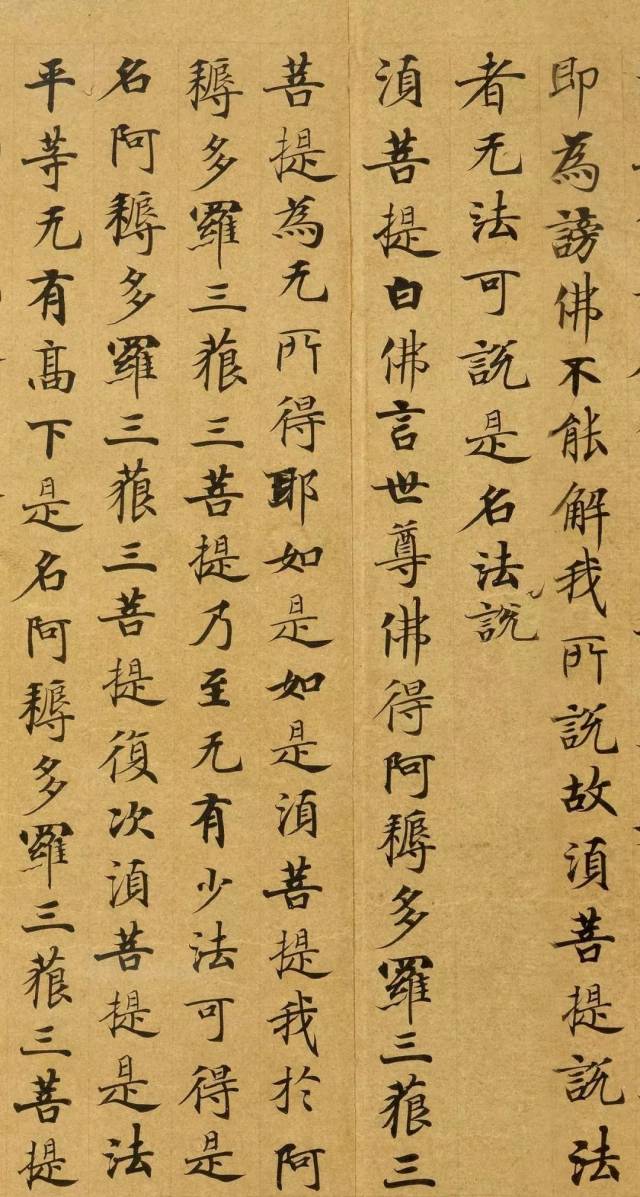 即為謗佛不能解我所説故湏菩提説法
者无法可説是名法説
湏菩提白佛言世尊佛得阿耨多羅三藐三
菩提為无所得耶如是如是湏菩提我於阿
耨多羅三藐三菩提乃至无有少法可得是
名阿耨多羅三藐三菩提復次湏菩提是法
平等无有髙下是名阿耨多羅三藐三菩提